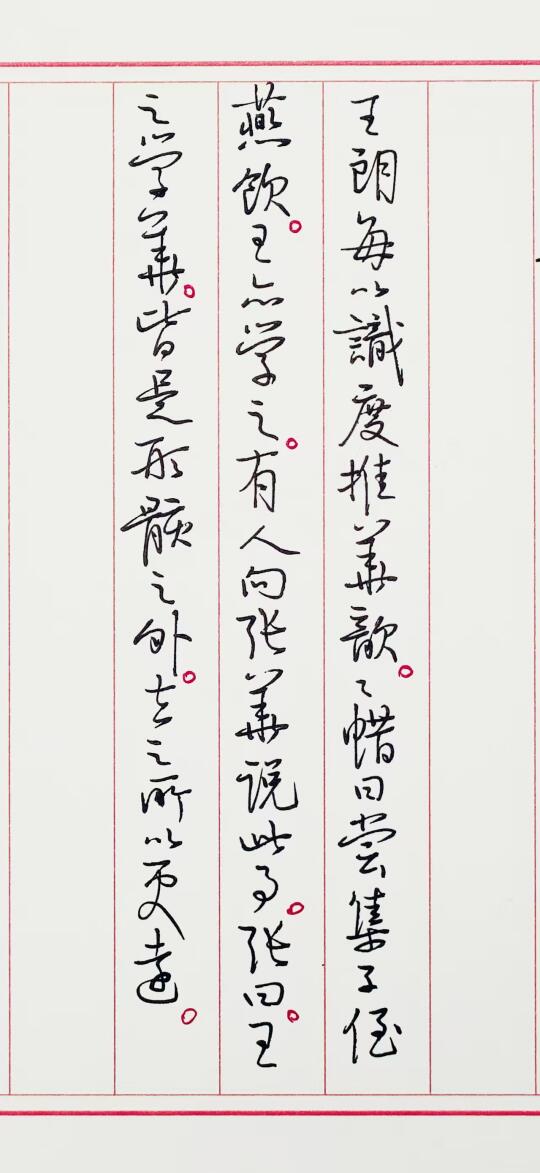 王朗每以識度推華歆。〻蜡日嘗集子侄
燕飲。王亦学之。有人向張華說此事。張曰。王
之学華。皆是形骸之外。去之所以更遠。